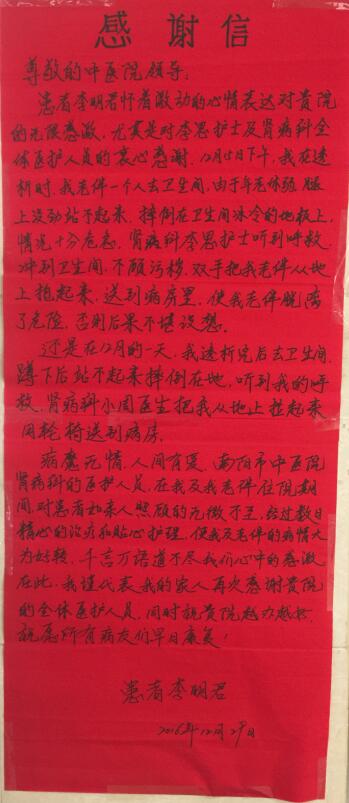 感谢信
尊敬的中医院领导：
患者李明君怀着激动的心情表达对贵院
的无限感激，尤其是对李思护士及肾病科全
体医护人员的衷心感谢，12月15日下午，我在透
析时，我老伴一个人去卫生间，由于年老体弱，腿
上没劲站不起来，摔倒在卫生间冰冷的地板上，
情况十分危急，肾病科李思护士听到呼救，
冲到卫生间，不顾污秽，双手把我老伴从地
上抱起来，送到病房里，使我老伴脱离
了危险，否则后果不堪设想。
还是在12月的一天，我透析完后去卫生间，
蹲下后站不起来摔倒在地，听到我的呼
救，肾病科小周医生把我从地上抱起来
用轮椅送到病房。
病魔无情，人间有爱，南阳市中医院
肾病科的医护人员，在我及我老伴住院期
间，对患者如亲人照顾的无微不至，经过数日
精心的治疗和贴心护理，使我及老伴的病情大
为好转，千言万语道不尽我们心中的感激
在此，我谨代表我的家人再次感谢贵院
的全体医护人员，同时祝贵院越办越好，
祝愿所有病友们早日康复！
患者李明君
2016年12月29日